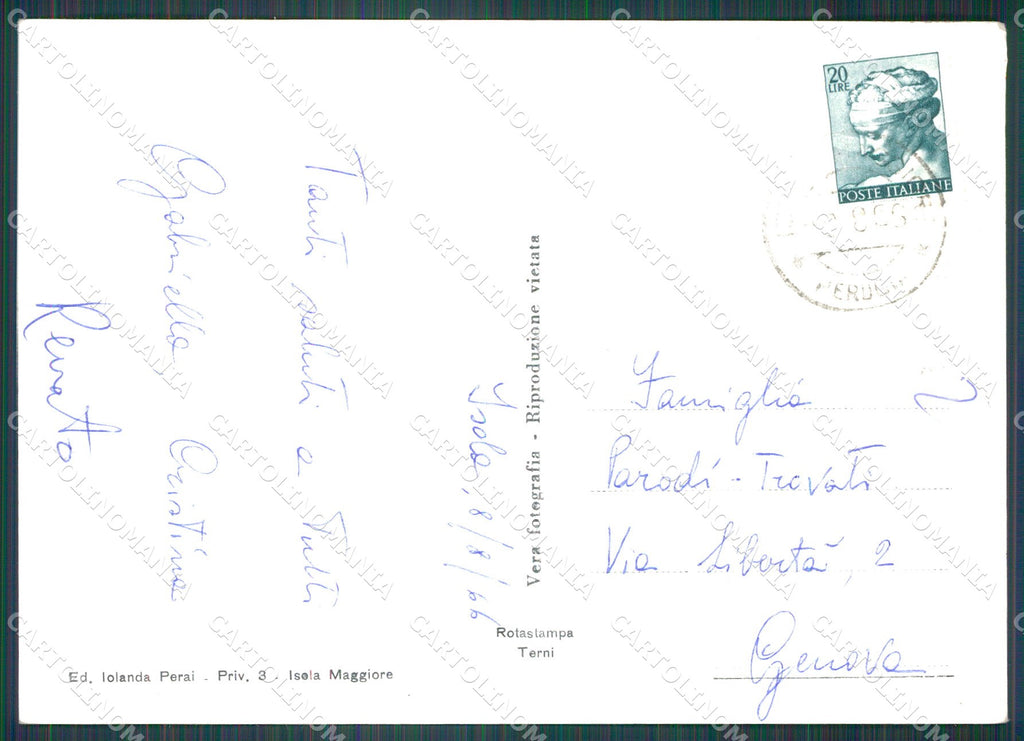 20
LIRE
POSTE ITALIANE
Isola, 8/8/66
Tanti saluti a tutti
Gabriella Cristina
Renato
Vera fotografia - Riproduzione vietata
Famiglia
Parodi - Trovati
Via Libertà, 2
Genova
Rotastampa
Terni
Ed. Iolanda Perai - Priv. 3 - Isola Maggiore
CARTOLINOMANIA